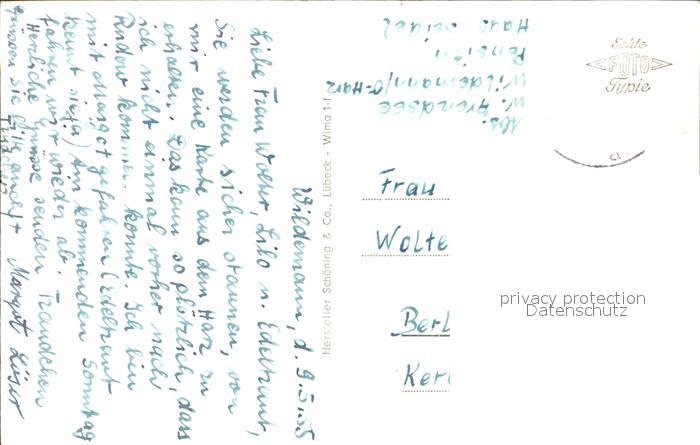 Wildemann, d. 9.5.55
Liebe Frau Wolter, Lilo u. Edeltraut,
Sie werden sicher staunen, von
mir eine Karte aus dem Harz zu
erhalten. Das kam so plötzlich, dass
ich nicht einmal vorher nach
Rudow kommen konnte. Ich bin
mit Margot gefahren (Edeltraut
kennt sie ja) Am kommenden Sonntag
fahren wir wieder ab.
Herzliche Grüsse senden Traudchen
grüssen Sie bitte auch Margot
Abs.
W. Arendsee
Wildemann/O-Harz
Pension
Haus Seidel
Echte
FOTO
Typie
Hersteller Schöning & Co., Lübeck - Wima 1-1
Frau
Wolte
Berl
Ker
privacy protection
Datenschutz